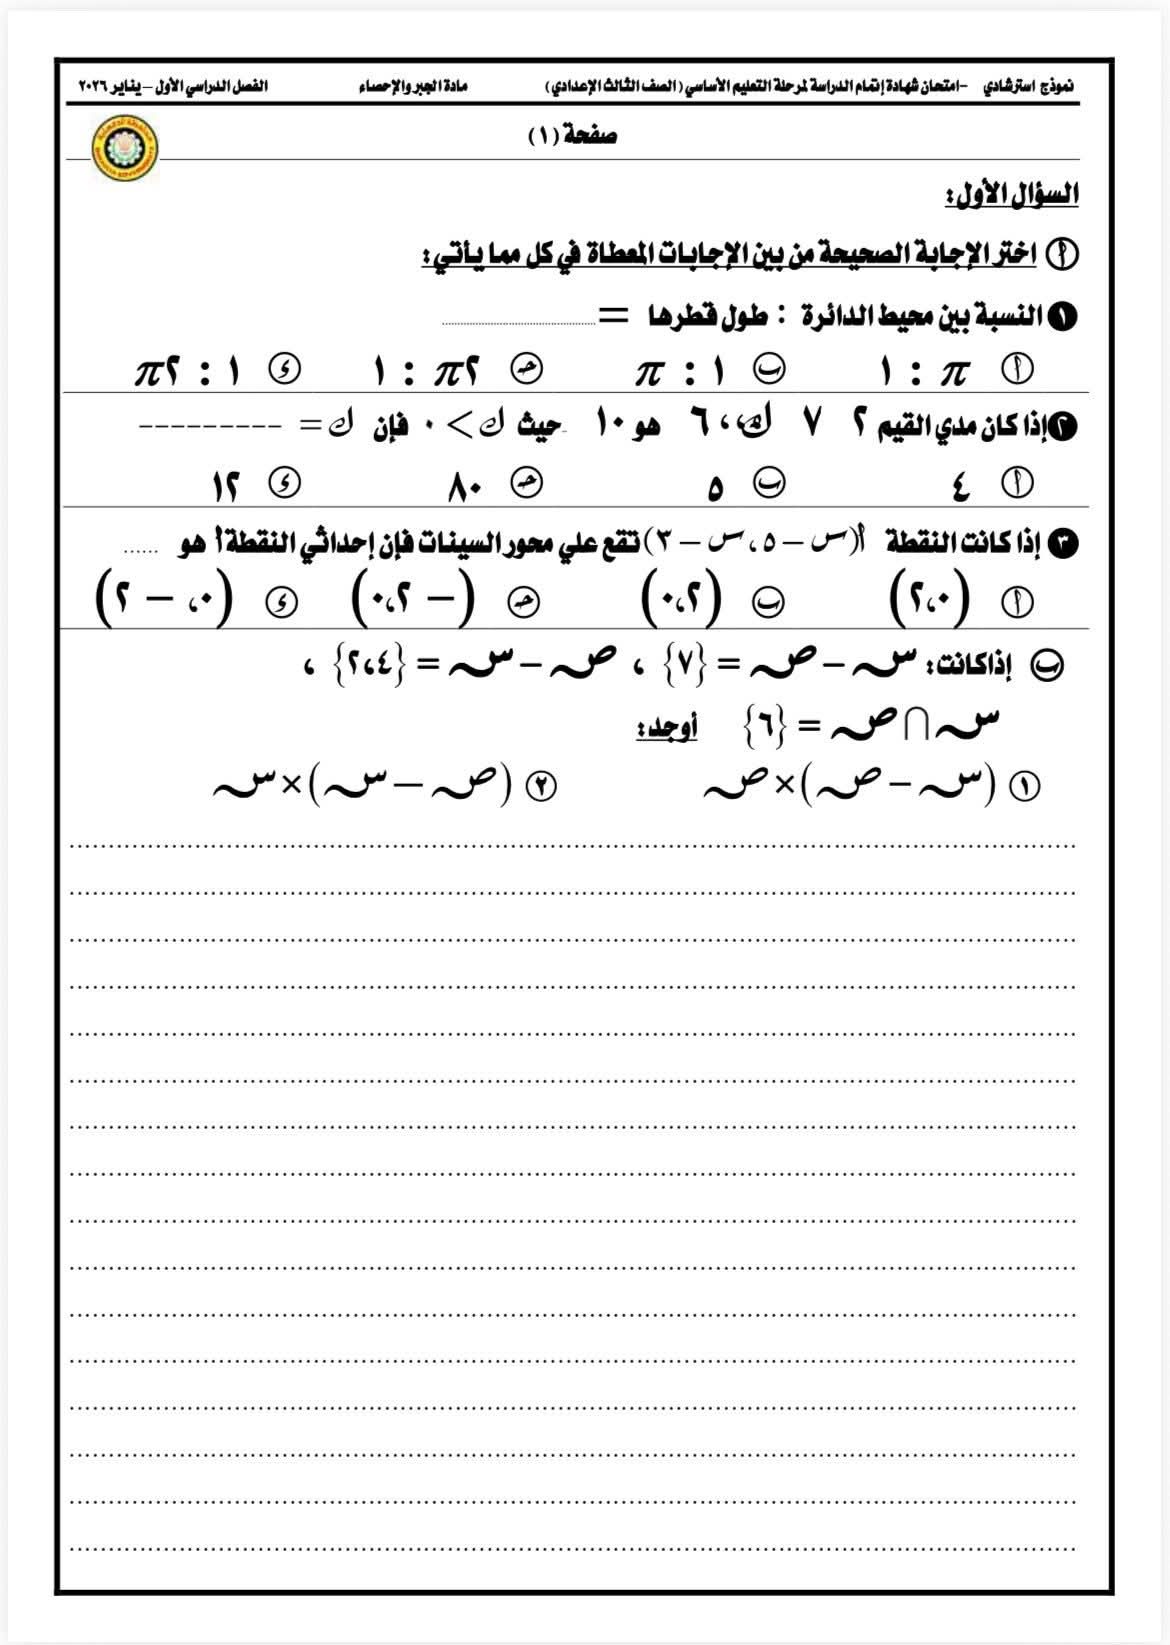 نموذج استرشادي –امتحان شهادة إتمام الدراسة لمرحلة التعليم الأساسي (الصف الثالث الإعدادي) مادة الجبر والإحصاء الفصل الدراسي الأول – يناير ٢٠٢٦
صفحة (١)
السؤال الأول:
أ اختر الإجابة الصحيحة من بين الإجابات المعطاة في كل مما يأتي:
١ النسبة بين محيط الدائرة : طول قطرها = ..............................
أ π : ١ ب ١ : π ج ٢π : ١ د ١ : ٢π
٢ إذا كان مدي القيم ٢ ٧ ك ، ٦ هو ١٠ حيث ك > ٠ فإن ك = ---------
أ ٤ ب ٥ ج ٨٠ د ١٢
٣ إذا كانت النقطة أ(س – ٥ ، س – ٣) تقع علي محور السينات فإن إحداثي النقطة أ هو ......
أ (٢،٠) ب (٠،٢) ج (– ٠،٢) د (٠، – ٢)
ب إذاكانت: سـ – صـ = {٧} ، صـ – سـ = {٢،٤} ،
سـ ∩ صـ = {٦} أوجد:
١ (سـ – صـ) × صـ ٢ (صـ – سـ) × سـ